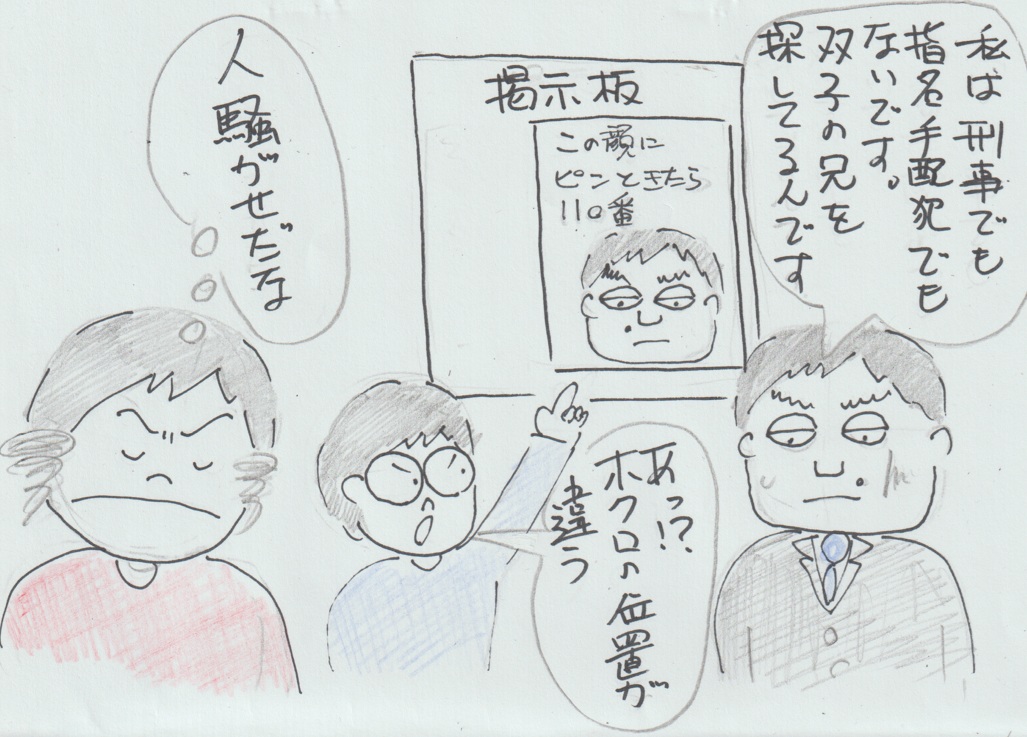 私は刑事でも
指名手配犯でも
ないです。
双子の兄を
探してるんです
掲示板
この顔に
ピンときたら
110番
あっ!?
ホクロの位置が
違う
人騒がせだな